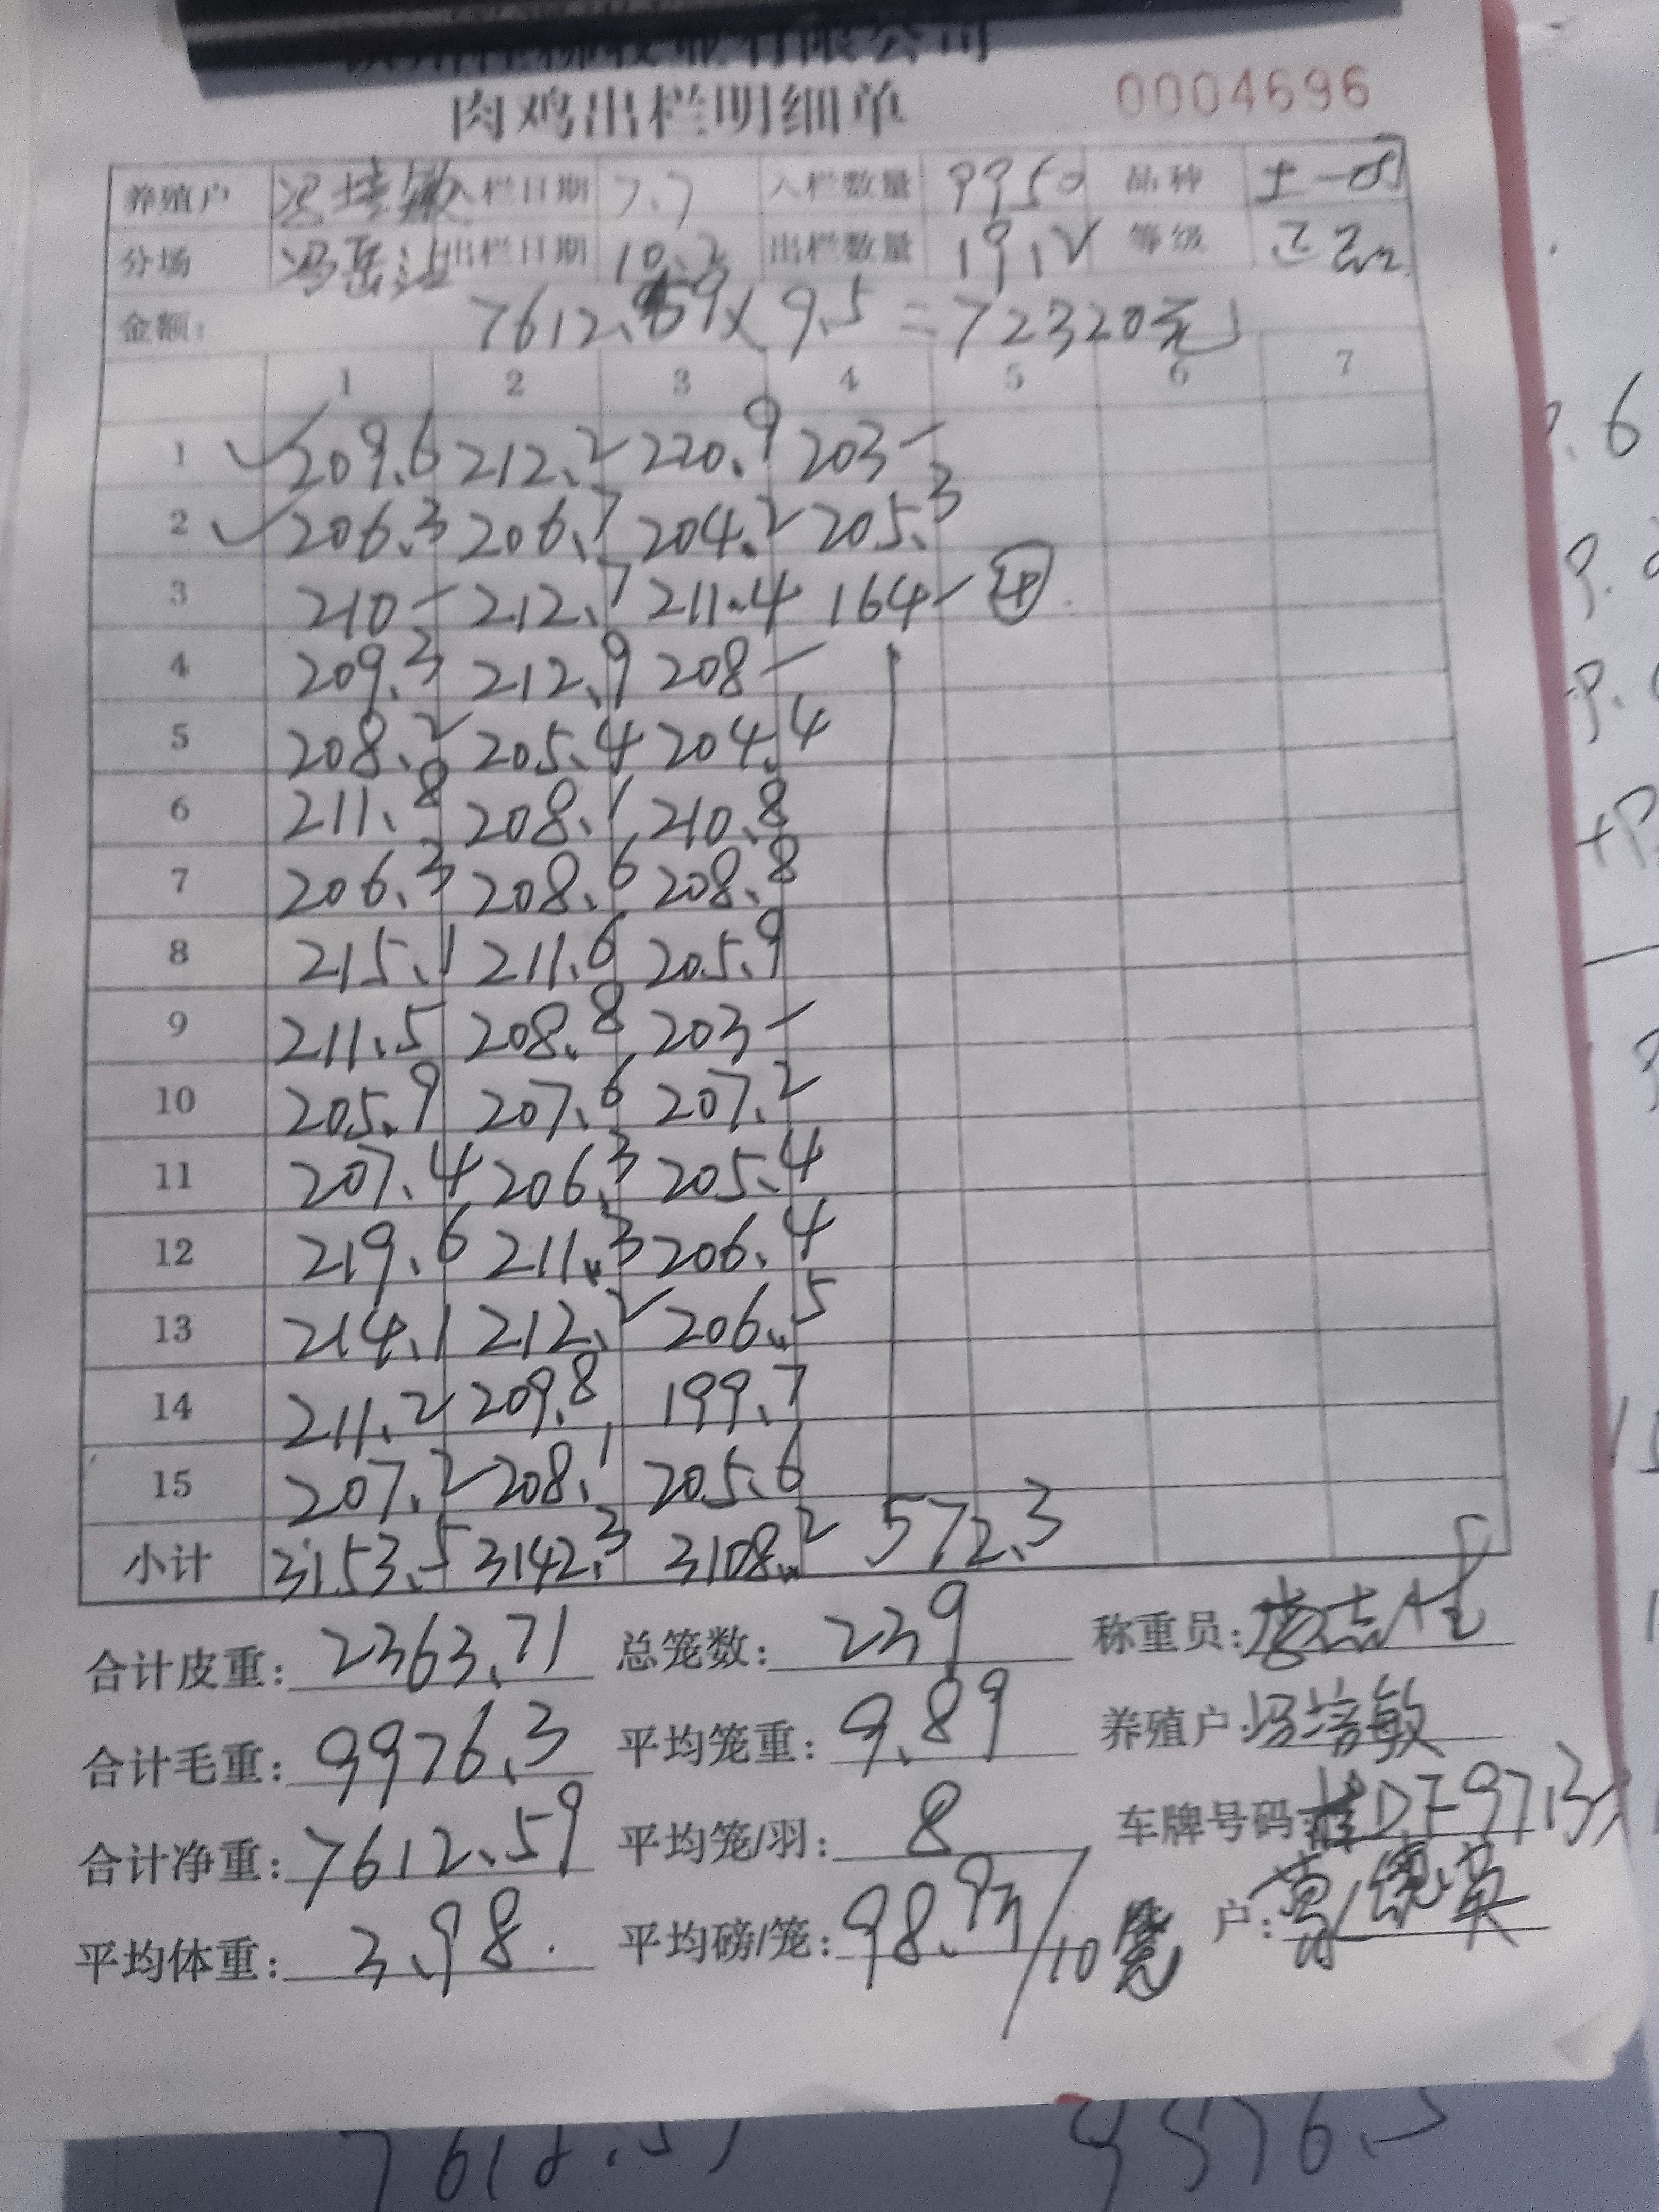 有限公司
肉鸡出栏明细单 0004696
养殖户 冯培敏 入栏日期 7.7 入栏数量 9950 品种
分场 出栏日期 10.2 出栏数量 1912 等级
金额: 7612.59×9.5=72320元
1 2 3 4 5 6 7
1 209.6 212.2 220.9 203-
2 206.3 206.7 204.2 205.3
3 210- 212.7 211.4 164- ④
4 209.3 212.9 208-
5 208.2 205.4 204.4
6 211.8 208.1 210.8
7 206.3 208.6 208.8
8 215.1 211.6 205.9
9 211.5 208.8 203-
10 205.9 207.6 207.2
11 207.4 206.3 205.4
12 219.6 211.3 206.4
13 214.1 212.2 206.5
14 211.2 209.8 199.7
15 207.2 208.1 205.6
小计 3153.5 3142.3 3108.2 572.3
合计皮重: 2363.71 总笼数: 239 称重员:
合计毛重: 9976.3 平均笼重: 9.89 养殖户: 冯培敏
合计净重: 7612.59 平均笼/羽: 8 车牌号码:
平均体重: 3.98. 平均磅/笼: 户: